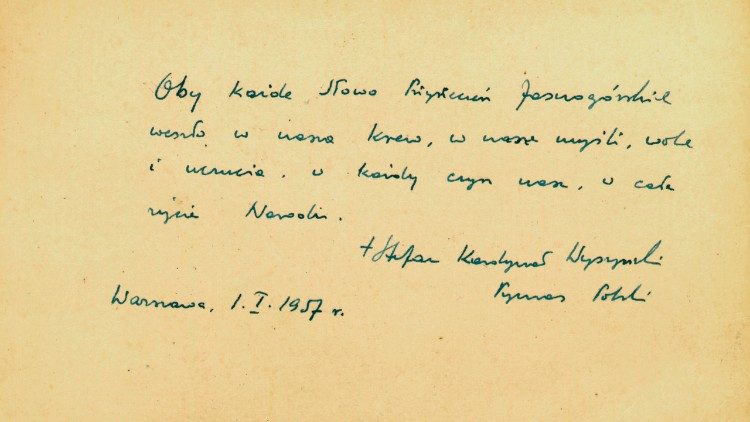 Oby każde Słowo Przyrzeczeń Jasnogórskich
weszło w naszą krew, w nasze myśli, wolę
i uczucia, w każdy czyn nasz, w całe
życie Narodu.
+ Stefan Kardynał Wyszyński
Prymas Polski
Warszawa, 1. I. 1957 r.